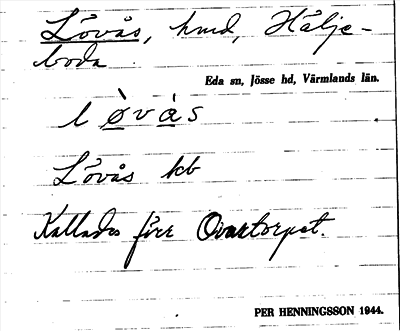 Lövås, hmd, Hälje-
boda
Eda sn, Jösse hd, Värmlands län.
l ø̀ v à s
Lövås kb
Kallades förr Ovantorpet.
PER HENNINGSSON 1944.